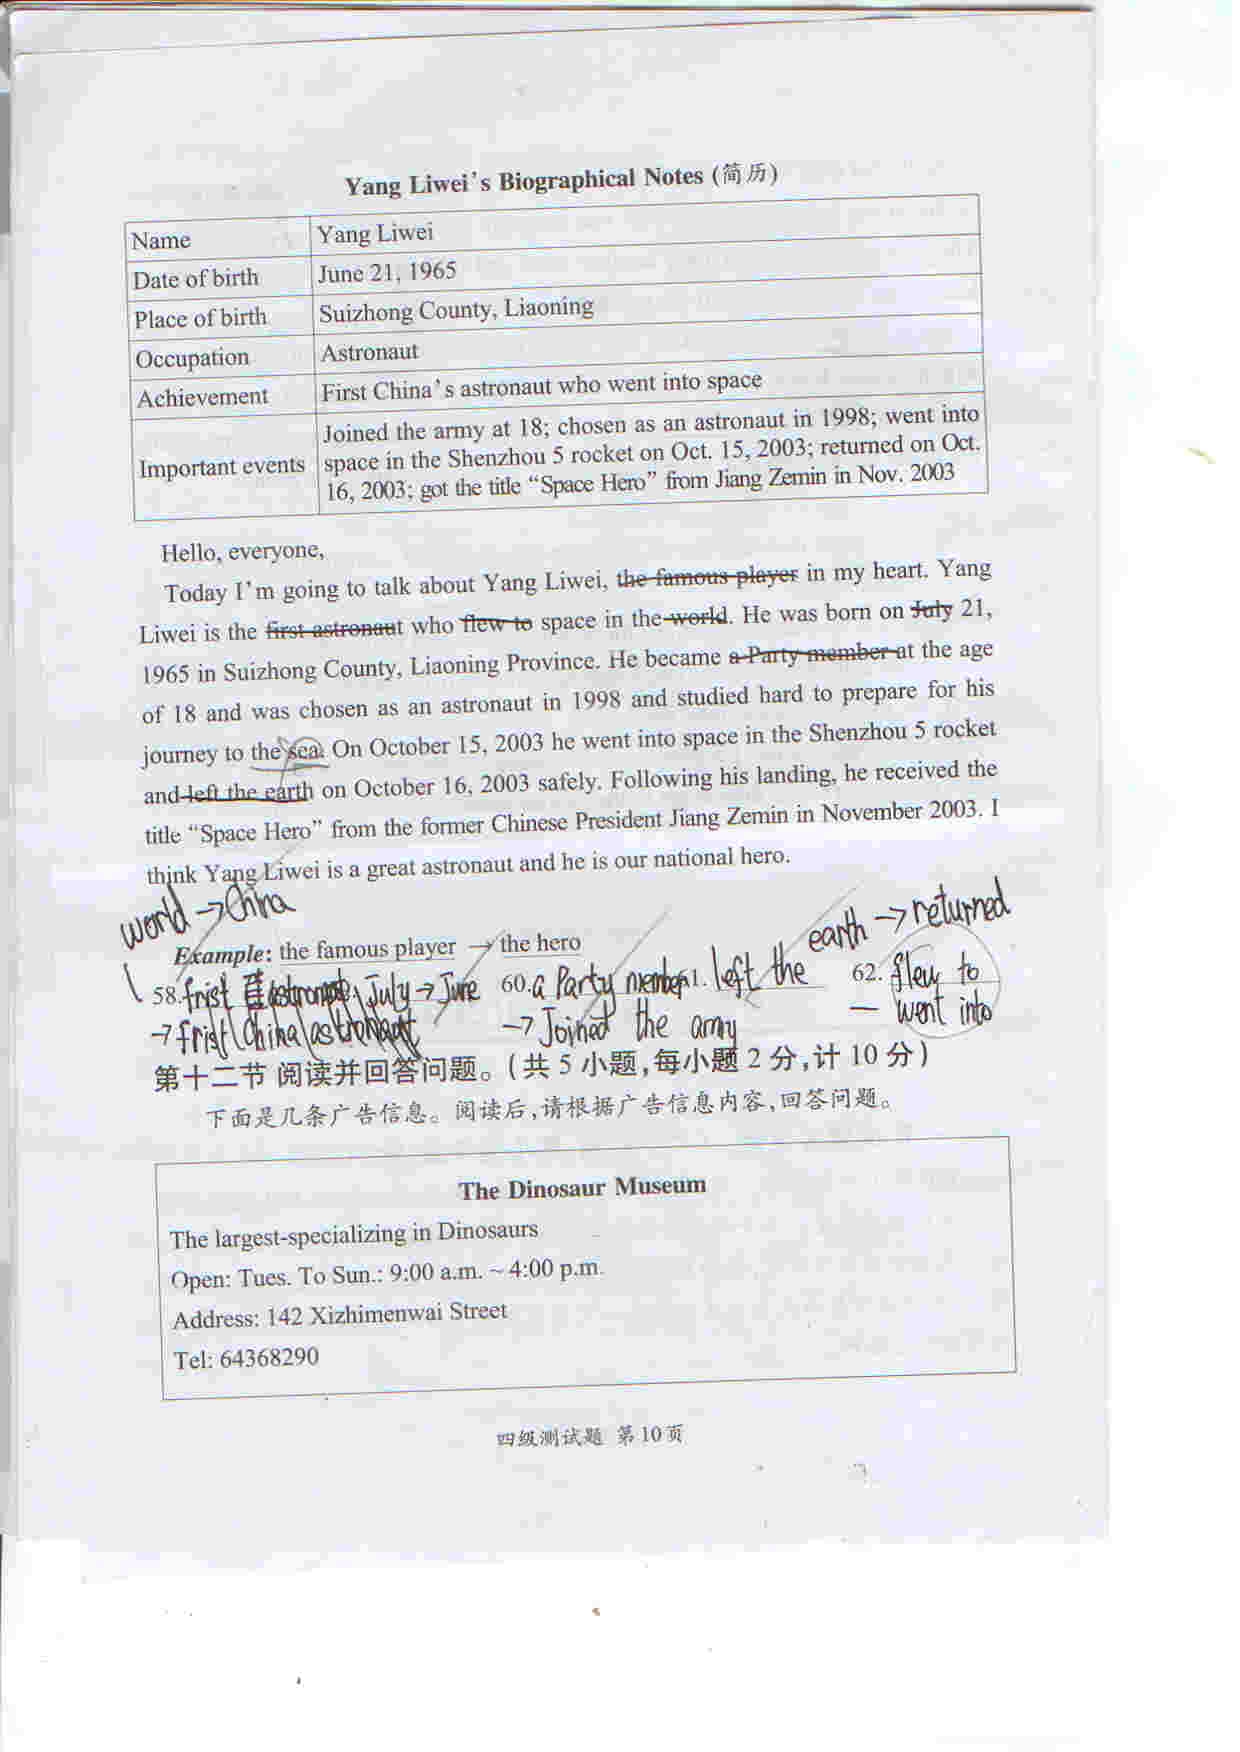 Yang Liwei's Biographical Notes (简历)
Name Yang Liwei
Date of birth June 21, 1965
Place of birth Suizhong County, Liaoning
Occupation Astronaut
Achievement First China's astronaut who went into space
Important events Joined the army at 18; chosen as an astronaut in 1998; went into
space in the Shenzhou 5 rocket on Oct. 15, 2003; returned on Oct.
16, 2003; got the title “Space Hero” from Jiang Zemin in Nov. 2003
Hello, everyone,
Today I'm going to talk about Yang Liwei, the famous player in my heart. Yang
Liwei is the first astronaut who flew to space in the world. He was born on July 21,
1965 in Suizhong County, Liaoning Province. He became a Party member at the age
of 18 and was chosen as an astronaut in 1998 and studied hard to prepare for his
journey to the sea. On October 15, 2003 he went into space in the Shenzhou 5 rocket
and left the earth on October 16, 2003 safely. Following his landing, he received the
title “Space Hero” from the former Chinese President Jiang Zemin in November 2003. I
think Yang Liwei is a great astronaut and he is our national hero.
world → China
earth → returned
Example: the famous player → the hero
58. frist July → June 60. a Party member 61. left the 62. flew to
→ frist China astronaut → Joined the army — went into
第十二节 阅读并回答问题。(共 5 小题,每小题 2 分,计 10 分)
下面是几条广告信息。阅读后,请根据广告信息内容,回答问题。
The Dinosaur Museum
The largest-specializing in Dinosaurs
Open: Tues. To Sun.: 9:00 a.m. ~ 4:00 p.m.
Address: 142 Xizhimenwai Street
Tel: 64368290
四级测试题 第10页